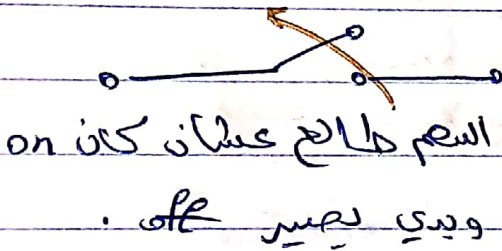 السهم طالع عشان كان on
وبدي يصير off .